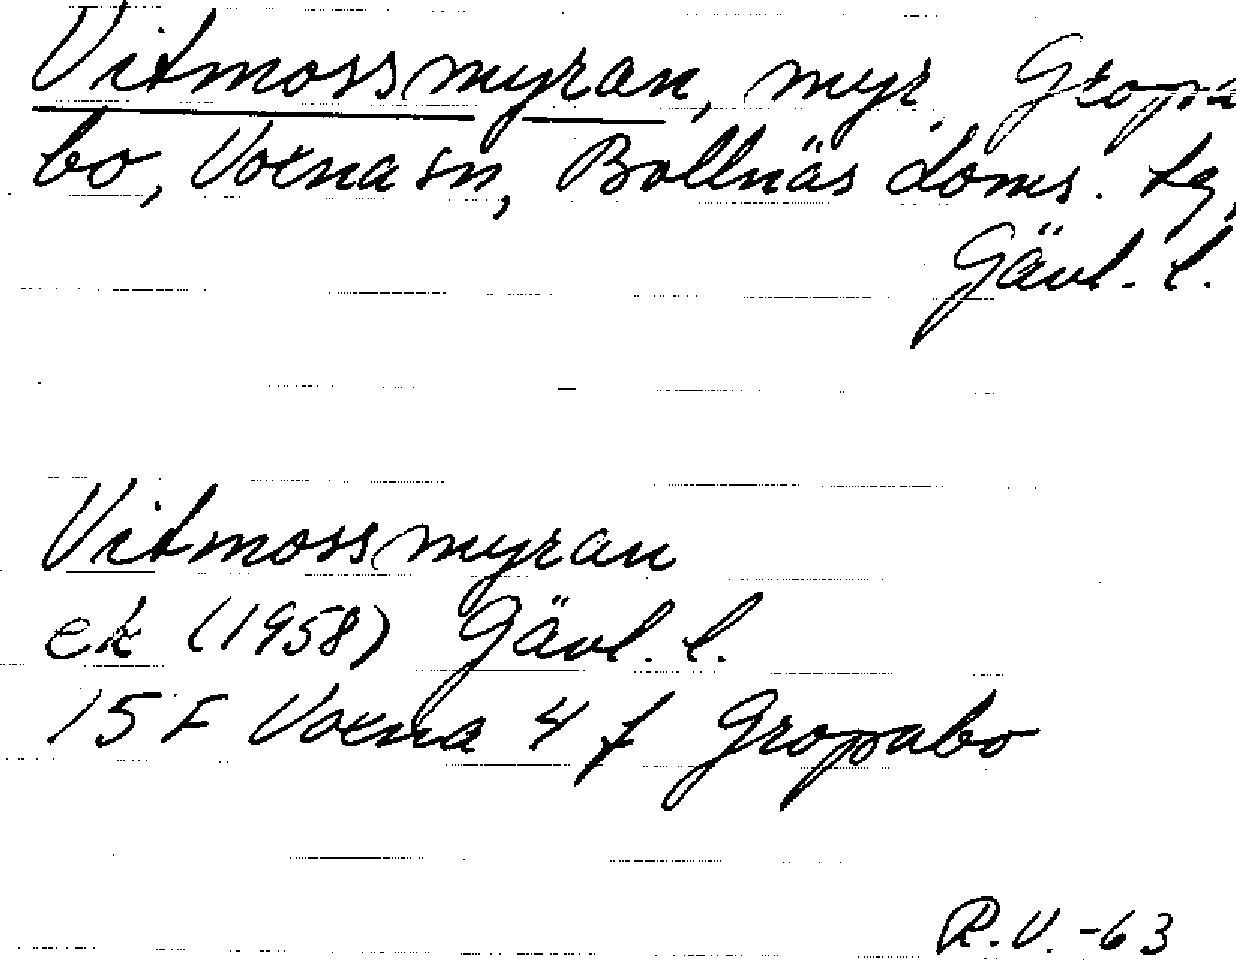 Vitmossmyran, myr. Gropa
bo, Voxna sn, Bollnäs doms. tg,
Gävl. l.
Vitmossmyran
ek (1958) Gävl. l.
15 F Voxna 4 f Gropabo
R.V. -63